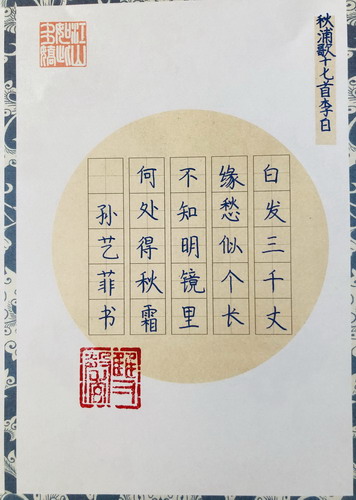 秋浦歌十七首李白
白发三千丈
缘愁似个长
不知明镜里
何处得秋霜
孙艺菲书
江山如此多娇